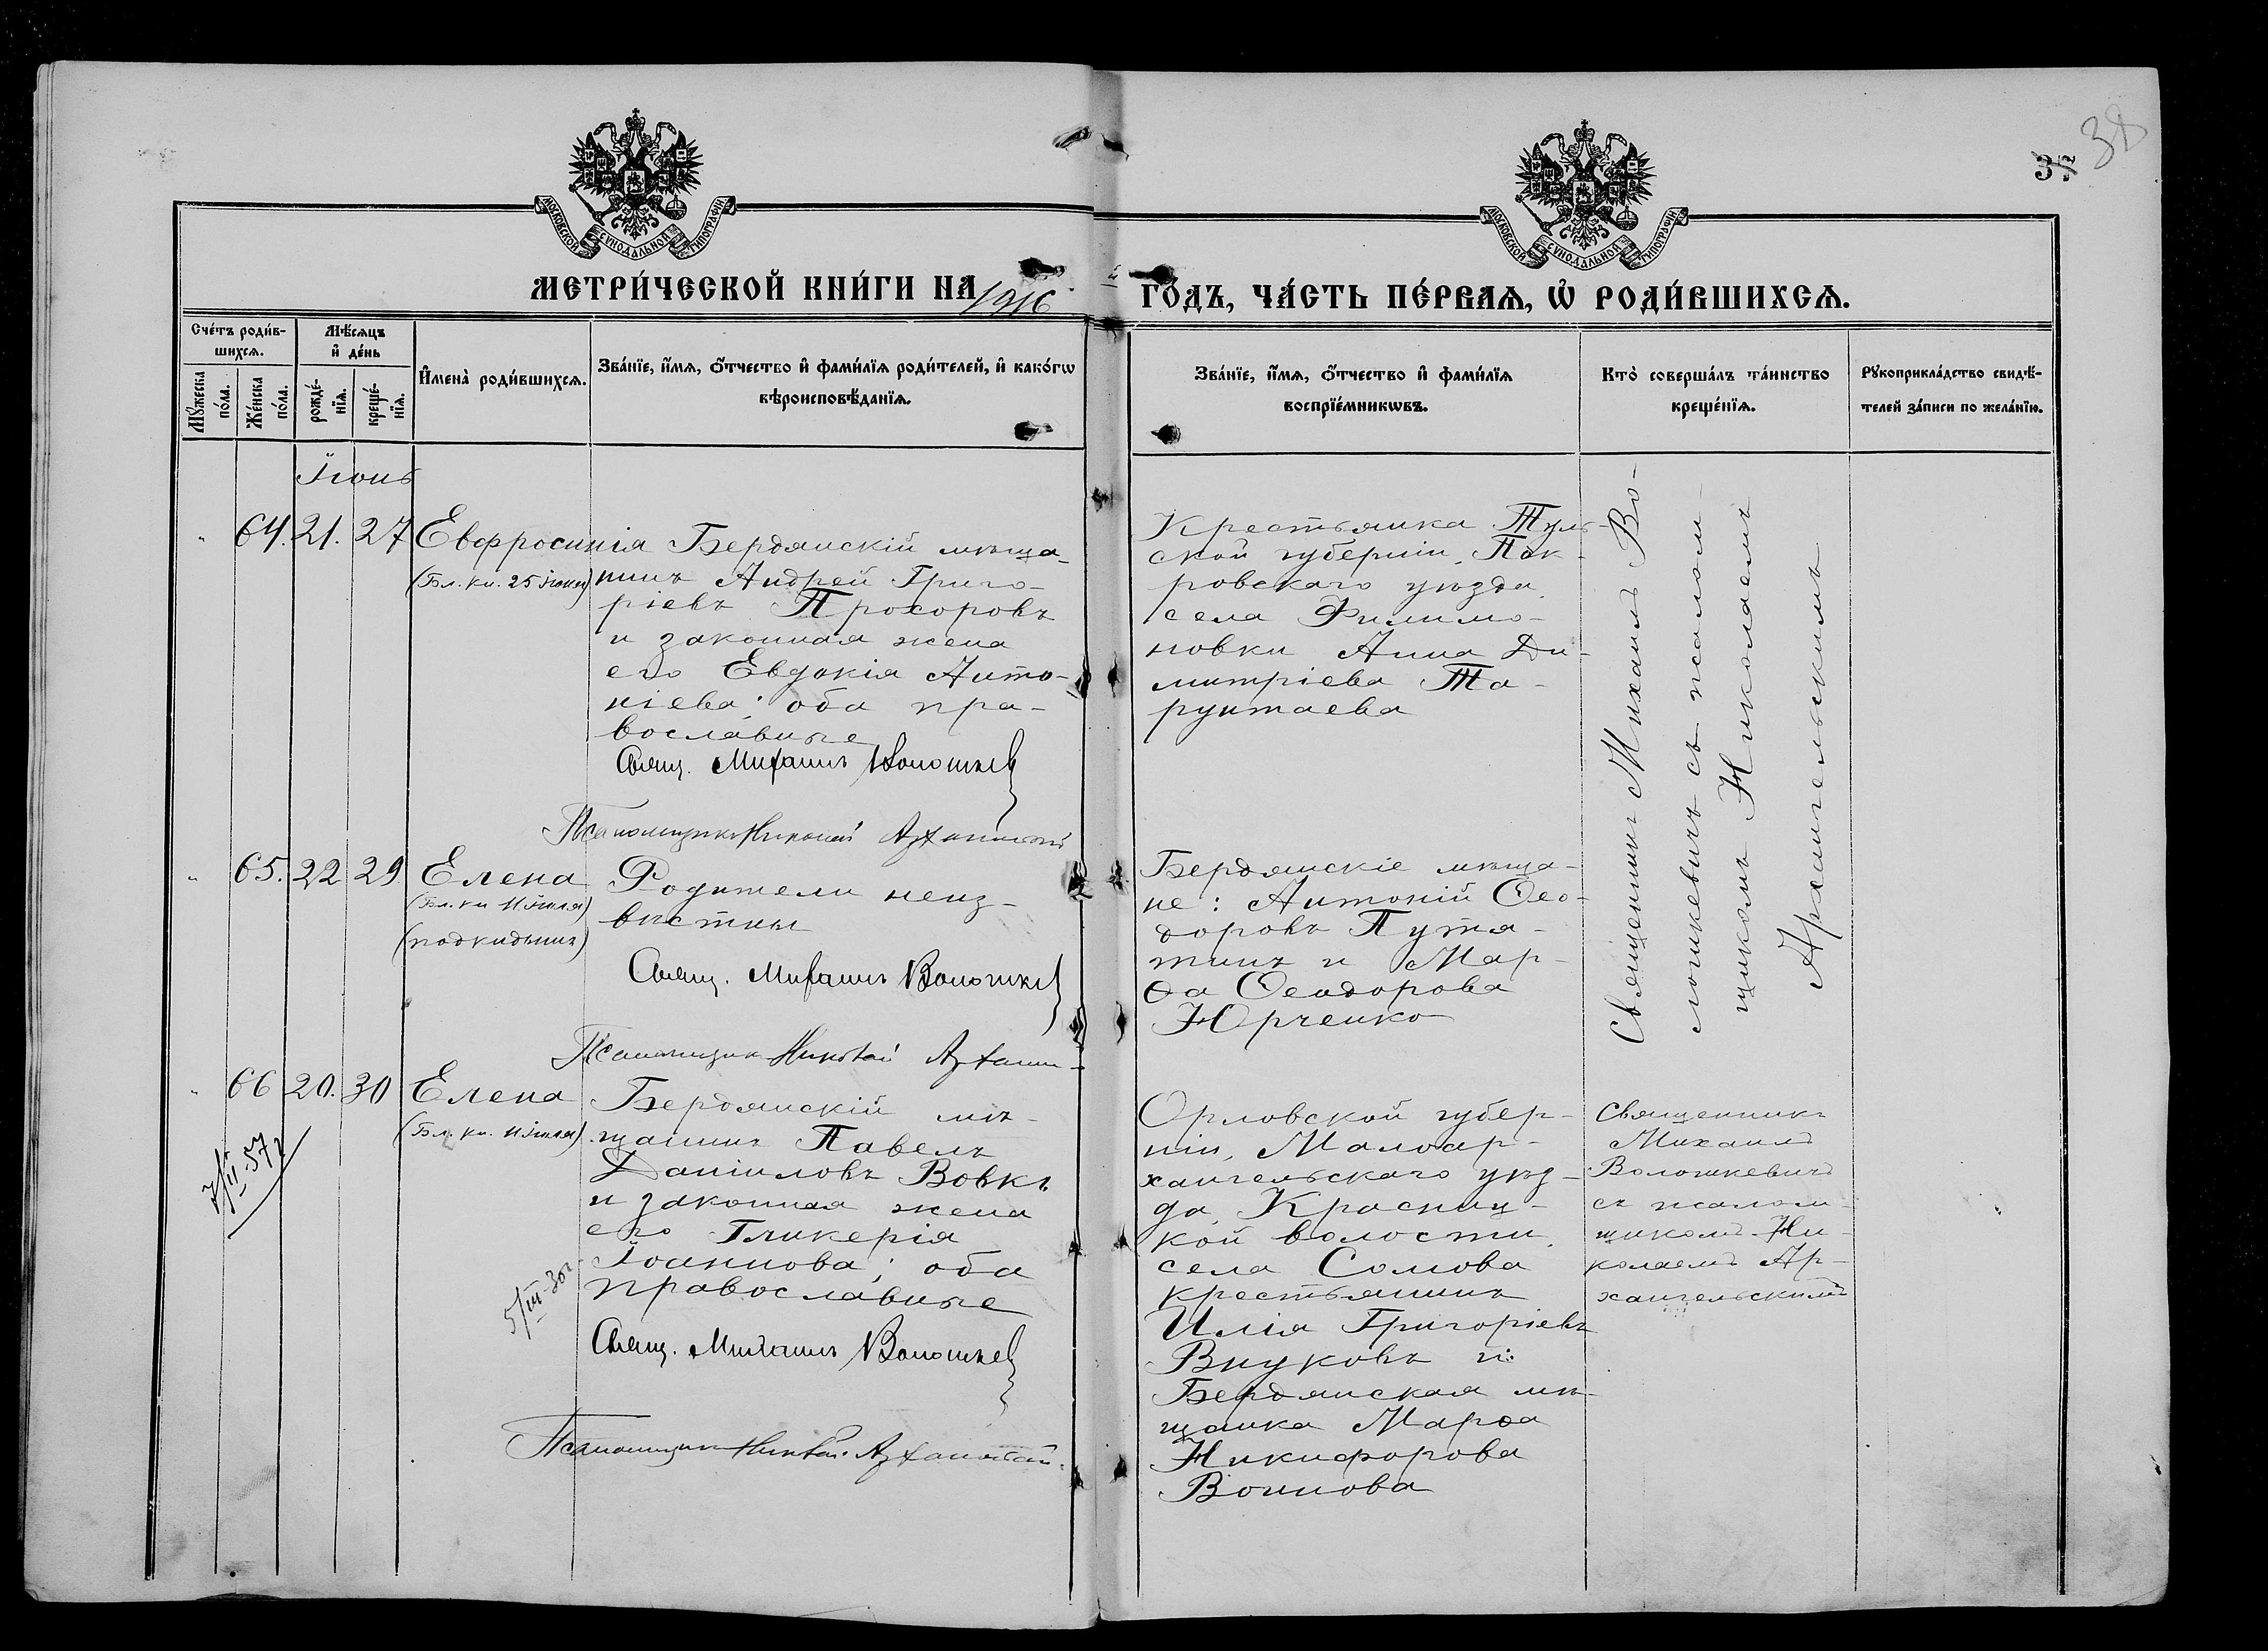 38
37
МОСКОВСКОЙ СѴНОДАЛЬНОЙ ТИПОГРАФІИ
МОСКОВСКОЙ СѴНОДАЛЬНОЙ ТИПОГРАФІИ
МЕТРИ́ЧЕСКОЙ КНИ́ГИ НА 1916
ГО́ДЪ, ЧА́СТЬ ПЕ́РВАѦ, Ѡ҆ РОДИ́ВШИХСѦ.
Сче́тъ роди́в-
шихсѧ.
Мꙋ́жеска
по́ла.
Же́нска
по́ла.
Мѣ́сѧцъ
и҆ де́нь
рожде́-
нїѧ.
креще́-
нїѧ.
И҆мена̀ роди́вшихсѧ.
Зва́нїе, и҆́мѧ, ѻ҆́тчество и҆ фами́лїѧ роди́телей, и҆ како́гѡ
вѣроисповѣ́данїѧ.
Зва́нїе, и҆́мѧ, ѻ҆́тчество и҆ фами́лїѧ
воспрїе́мникѡвъ.
Кто̀ соверша́лъ та́инство
креще́нїѧ.
Рꙋкоприкла́дство свидѣ́-
телей за́писи по жела́нїю.
Іюнь
64. 21. 27 Евфросинія
(Бл. кн. 25 Іюня)
Бердянскій мѣща-
нинъ Андрей Григо-
ріевъ Прохоровъ
и законная жена
его Евдокія Анто-
ніева; оба пра-
вославные
Свящ. Михаилъ Волошкев
Псаломщикъ Николай Архангельскій
Крестьянка Туль-
ской губерніи, Пок-
ровскаго уѣзда,
села Филимо-
новки Анна Ди-
митріева Та-
рунтаева
Священникъ Михаилъ Во-
лошкевичъ съ псалом-
щикомъ Николаемъ
Архангельскимъ
65. 22 29 Елена
(Бл. кн. 11 Іюля)
(подкидышъ)
Родители неиз-
вѣстны
Свящ. Михаилъ Волошкев
Псаломщикъ Николай Архан
Бердянскіе мѣща-
не: Антоній Ѳео-
доровъ Путя-
тинъ и Мар-
ѳа Ѳеодорова
Юрченко
66 20. 30 Елена
(Бл. кн. 11 Іюля)
7/II-57
5/III-30г.
Бердянскій мѣ-
щанинъ Павелъ
Даніиловъ Вовкъ
и законная жена
его Гликерія
Іоаннова; оба
православные
Свящ. Михаилъ Волошкев
Псаломщикъ Николай Архангельскій
Орловской губер-
ніи, Малоар-
хангельскаго уѣз-
да, Красниц-
кой волости,
села Сомова
крестьянинъ
Илія Григоріевъ
Внуковъ и
Бердянская мѣ-
щанка Марѳа
Никифорова
Воинова
Священникъ
Михаилъ
Волошкевичъ
съ псалом-
щикомъ Ни-
колаемъ Ар-
хангельскимъ